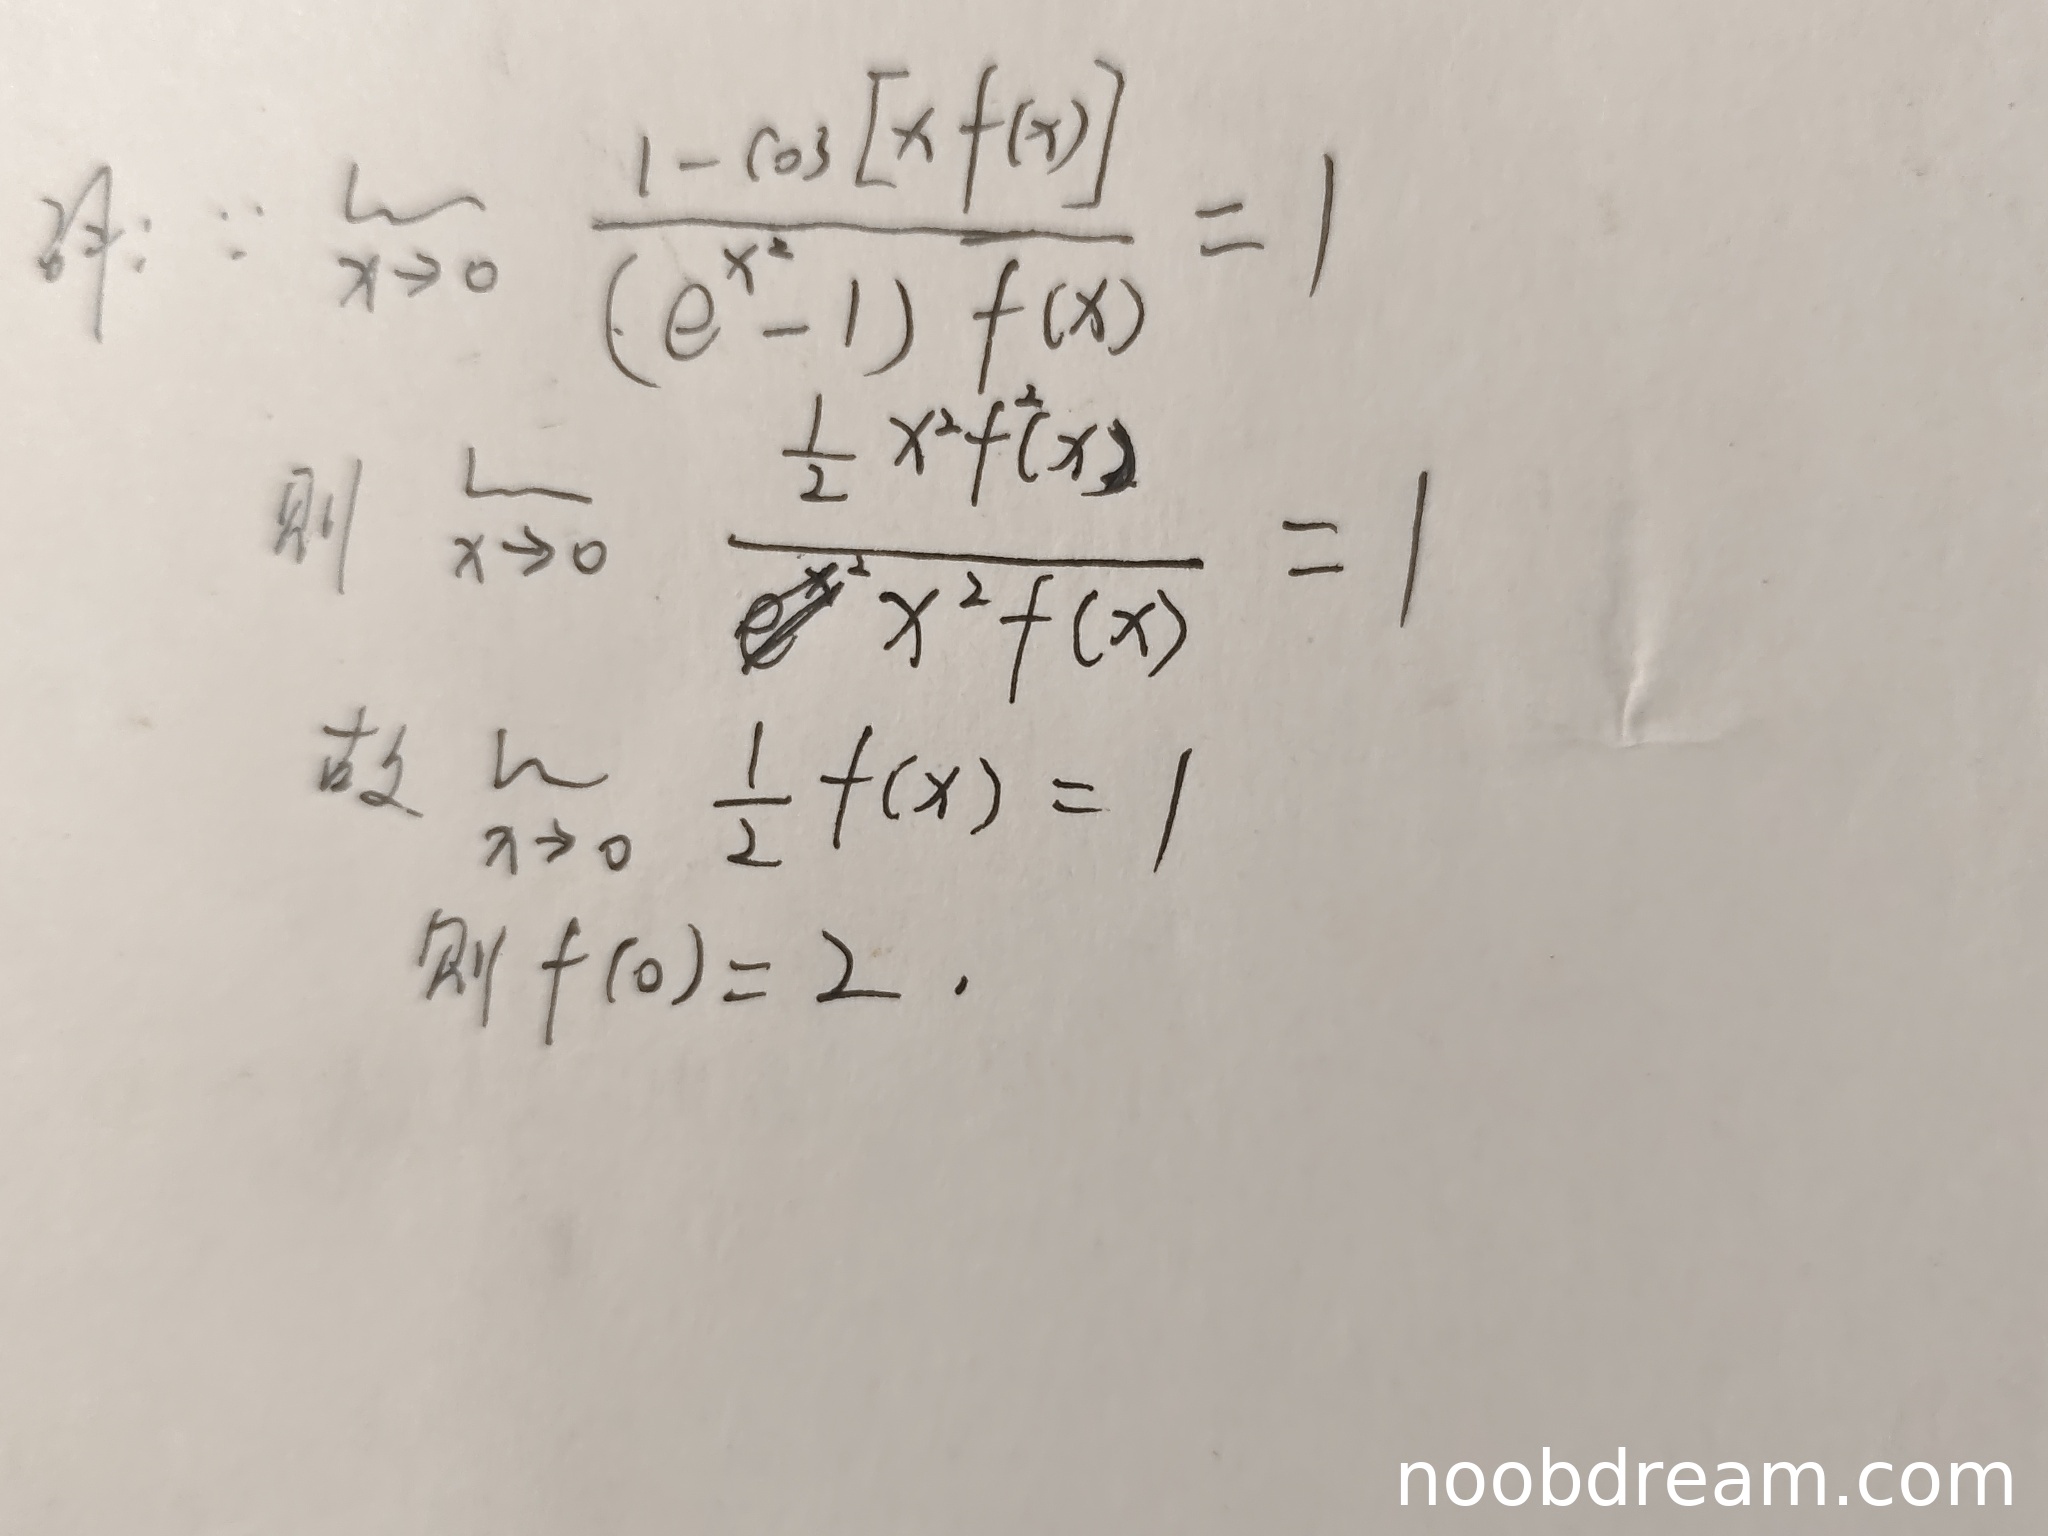 解: ∵ lim x→0 1-cos[xf(x)] / (e^x²-1) f(x) = 1
则 lim x→0 ½ x²f²(x) / x²f(x) = 1
故 lim x→0 ½ f(x) = 1
则 f(0) = 2 .
noobdream.com